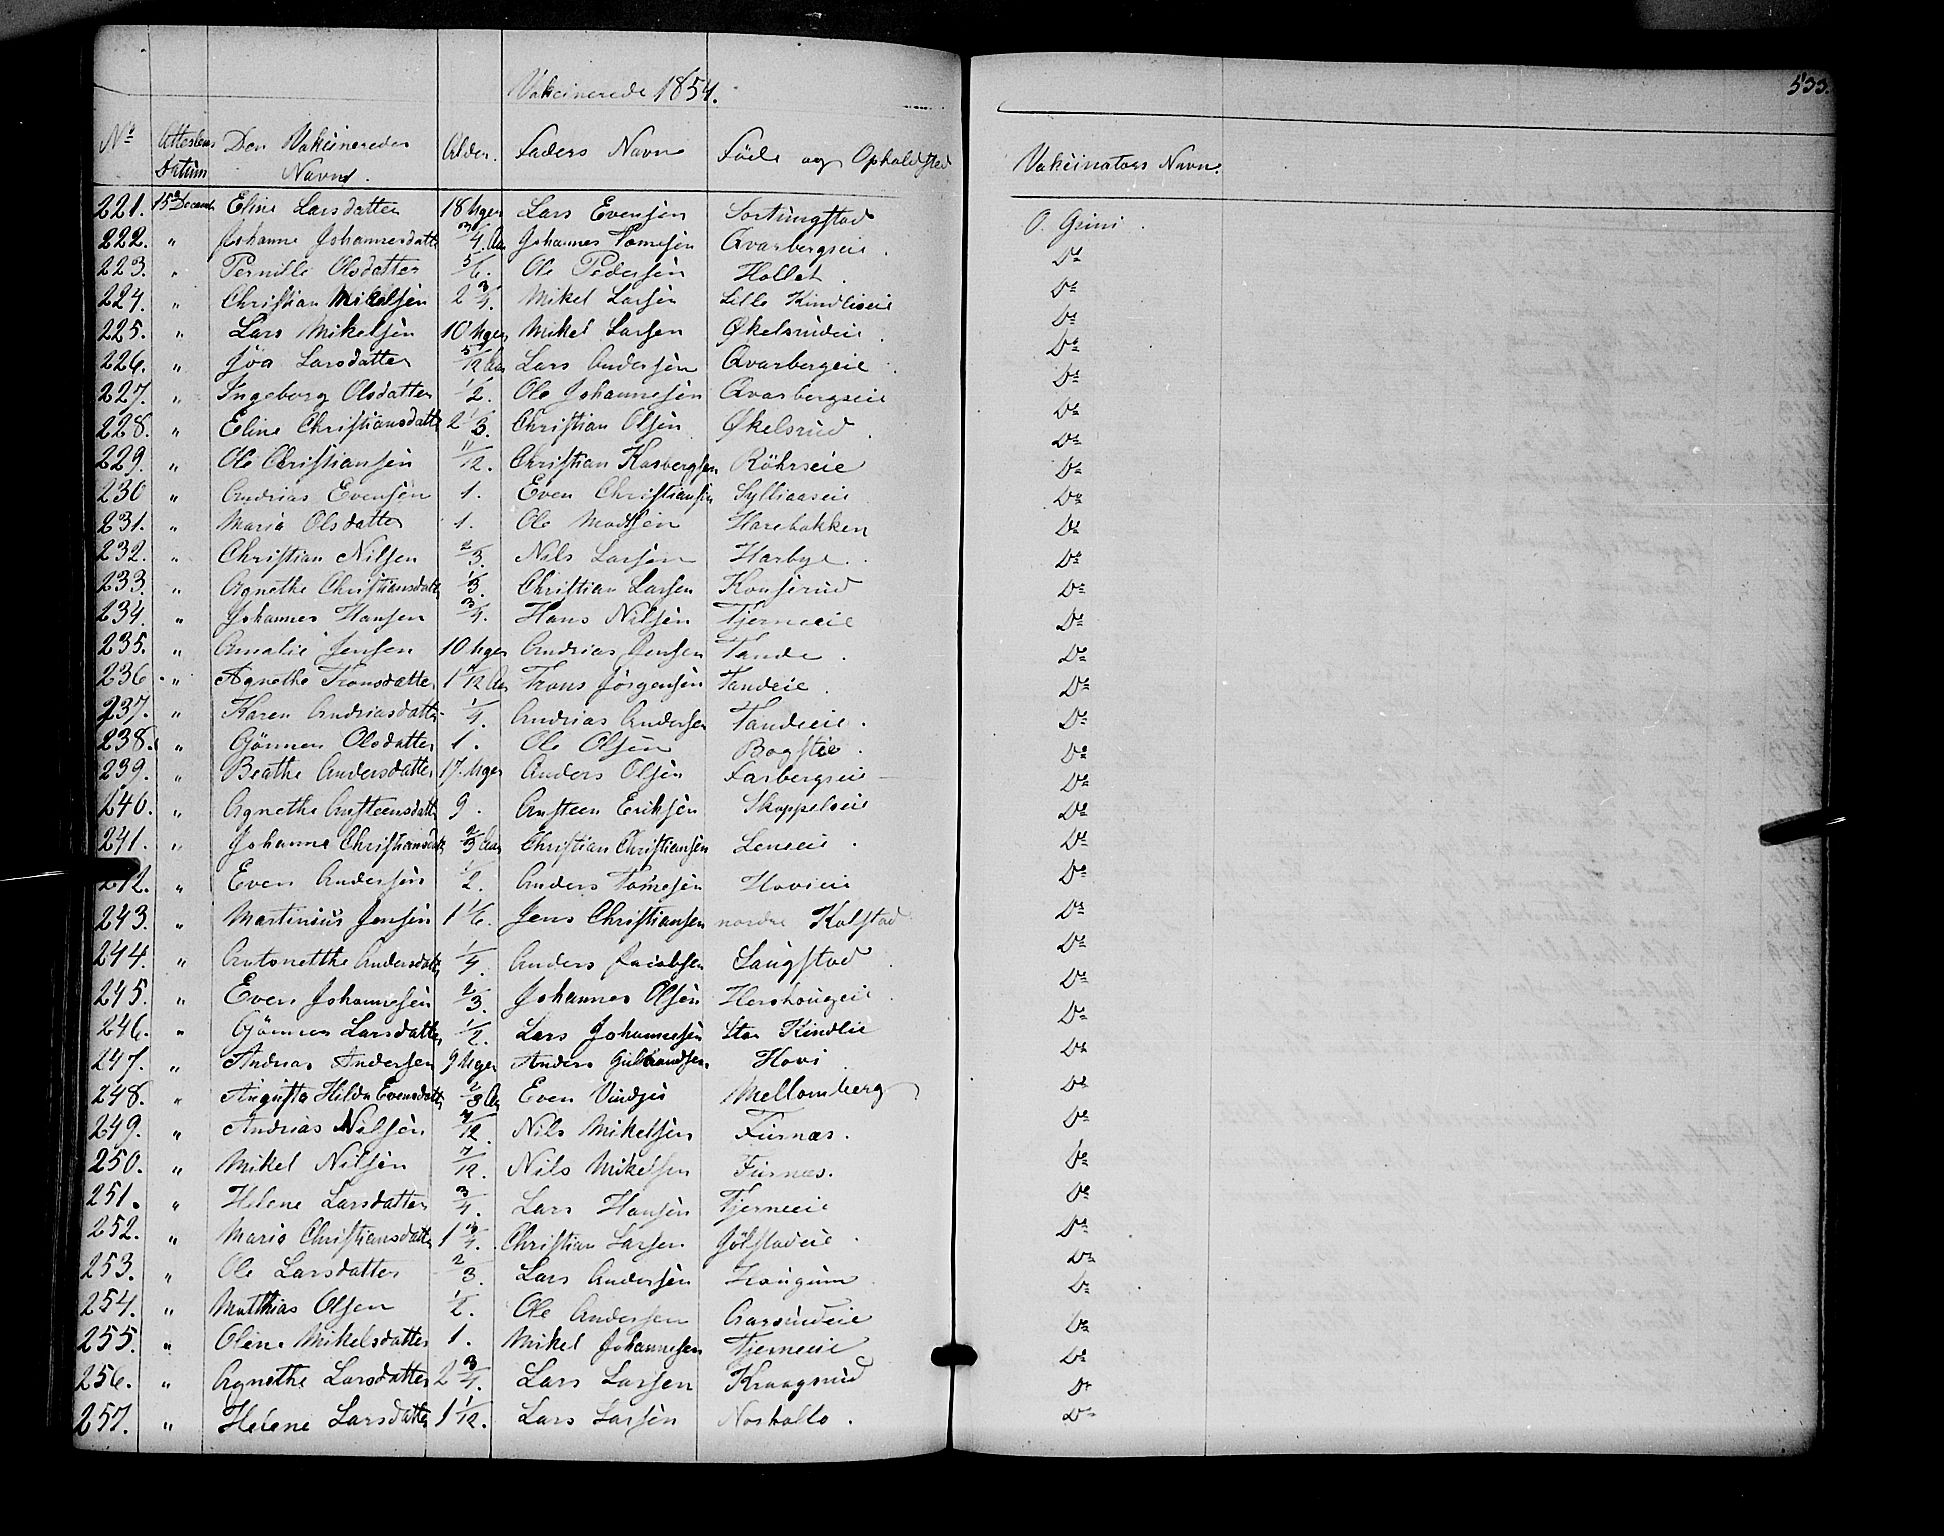 533.
Vakcinerede 1854.
No Attestens Datum Den Vakcineredes Navn. Alder. Faders Navn Føde og Opholdsted Vakcinators Navn.
221. 15de Decemb Eline Larsdatter 18 Uger Lars Evensen Sortungstad O. Grini.
222. " Johanne Johannesdatt 3/4 Aar Johannes Tomesen Qvarbergseie. Do
223. " Pernille Olsdatter 5/6. Ole Pedersen Hollet. Do
224. " Christian Mikelsen 2 3/4. Mikel Larsen Lille Kindlieie Do
225. " Lars Mikelsen 10 Uger Mikel Larsen Økelsrudeie. Do
226. " Joa Larsdatter 5/12 Aar Lars Andersen Qvarbergeie. Do
227. " Ingeborg Olsdatter 1/2. Ole Johannesen Qvarbergseie Do
228. " Eline Christiansdatt 2 1/3. Christian Olsen Økelsrud. Do
229. " Ole Christiansen 11/12. Christian Kasbergsen Röhrseie Do
230 " Andrias Evensen 1. Even Christiansen Sylliaaseie Do
231. " Maria Olsdatter 1. Ole Madsen Harebakken Do
232. " Christian Nilsen 2/3. Nils Larsen Harbye. Do
233. " Agnethe Christiansdatt 1/3. Christian Larsen Konserud Do
234. " Johannes Hansen 3/4. Hans Nilsen Tjerneeie Do
235. " Amalie Jensen 10 Uger Andrias Jensen Tande. Do
236. " Agnethe Tronsdatter 1 1/12 Aar Trons Jörgensen Tandeie. Do
237. " Karen Andriasdatter 1/4. Andrias Andersen Tandeeie. Do
238. " Gönner Olsdatter 1. Ole Olsen Bogstie. Do
239. " Beathe Andersdatter 17. Uger Anders Olsen Farbergseie Do
240. " Agnethe Austeensdatt 9. Austeen Eriksen Skappelseie Do
241. " Johanne Christiansdatt 2/3 Aar Christian Christiansen Leneeie. Do
242. " Even Andersen 1/2. Anders Tomesen Hovieie Do
243. " Martinius Jensen 1 1/6. Jens Christiansen nordre Kolstad Do
244. " Antonetthe Andersdatt 1/4. Anders Jacobsen Saugstad. Do
245. " Even Johannesen 2/3. Johannes Olsen Hershougeie. Do
246. " Gönner Larsdatter 1/2. Lars Johannesen Stor Kindlie Do
247. " Andreas Andersen 9 Uger Anders Gulbrandsen. Hovi Do
248. " Augusta Hilda Evensdatt 2/3 Aar Even Vindju Mellomberg Do
249. " Andrias Nilsen 7/12. Nils Mikelsen Furnæs. Do
250. " Mikel Nilsen 7/12. Nils Mikelsen Furnæs. Do
251. " Helene Larsdatter 3/4. Lars Hansen Tjerneeie Do
252. " Maria Christiansdatt 1 3/4. Christian Larsen Jölstadeie. Do
253. " Ole Larsdatter 2/3. Lars Andersen Hougum Do
254. " Matthias Olsen 1/2. Ole Andersen Aarsrudeie Do
255. " Oline Mikelsdatter 1. Mikel Johannesen Tjerneeie Do
256. " Agnethe Larsdatter 2 3/4. Lars Larsen Kraagsrud Do
257. " Helene Larsdatter 1 1/12. Lars Larsen Norkollo. Do